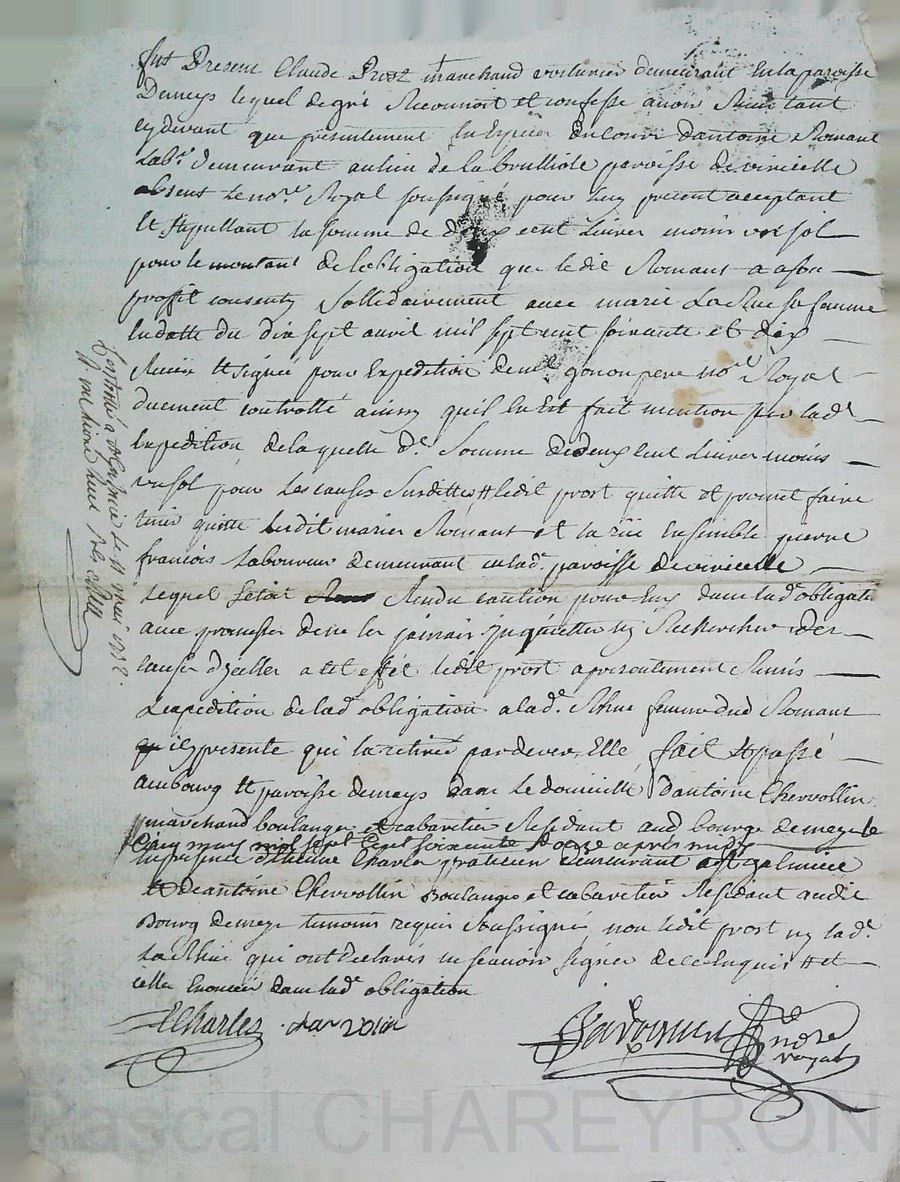 fut Present Claude Prost marchand voiturier demeurant en la paroisse
Demeys lequel de gré Reconnoit et confesse avoir Receu tant
cy devant que presentement en Espèces du cours d'antoine Romant
Lab.r demeurant au lieu de la brulliole paroisse de viricelle
absent Le no.re Royal soussigné pour luy present acceptant
Et stipullant la somme de deux cent Livres moins un sol
pour le montant de lobligation que ledit Romant a a son
proffit consenty Sollidairement avec marie La Rue sa femme
en datte du dix sept avril mil sept cent soixante et dix
Receüe et signée pour Expedition de m.e gonon pere no.re Royal
duement controllé ainssy quil En Est fait mention par lad.e
Expedition de laquelle d.e Somme de deux cent Livres moins
un sol pour Les causes Surdittes # ledit prost quitte et promet faire
tenir quitte Lesdit mariés Romant et la rüe Ensemble pierre
françois Laboureur demeurant en lad. paroisse de viricelle
Lequel setoit Rendu caution pour Eux dans lad.e obligat.
avec promesse de ne les jamais Inquietter ny Rechercher des
causes dycelles a cet effet ledit prost a presentement Remis
Lexpedition de lad.e obligation a lad.e Rhue femme dud Romant
icy presente qui la retirée pardevers Elle fait Et passé
au bourg Et paroisse demeys dans Le domicille d'antoine Chervollin
marchand boulanger et cabaretier Residant aud bourg de meys le
Cinq may mil Sept Cent soixante Et onze apres midy
En presence d'Etienne Charles praticien demeurant a st galmier
Et de antoine Chervollin Boulanger et cabaretier Residant audit
Bourg de meys temoins requis Soussignés non ledit prost ny lad.e
La Rhüe qui ont declarés ne scavoir signer de ce Enquis # et
icelle Enoncée dans lad.e obligation
ECharles
no.re royal
Controllé a st galmier le
may 177